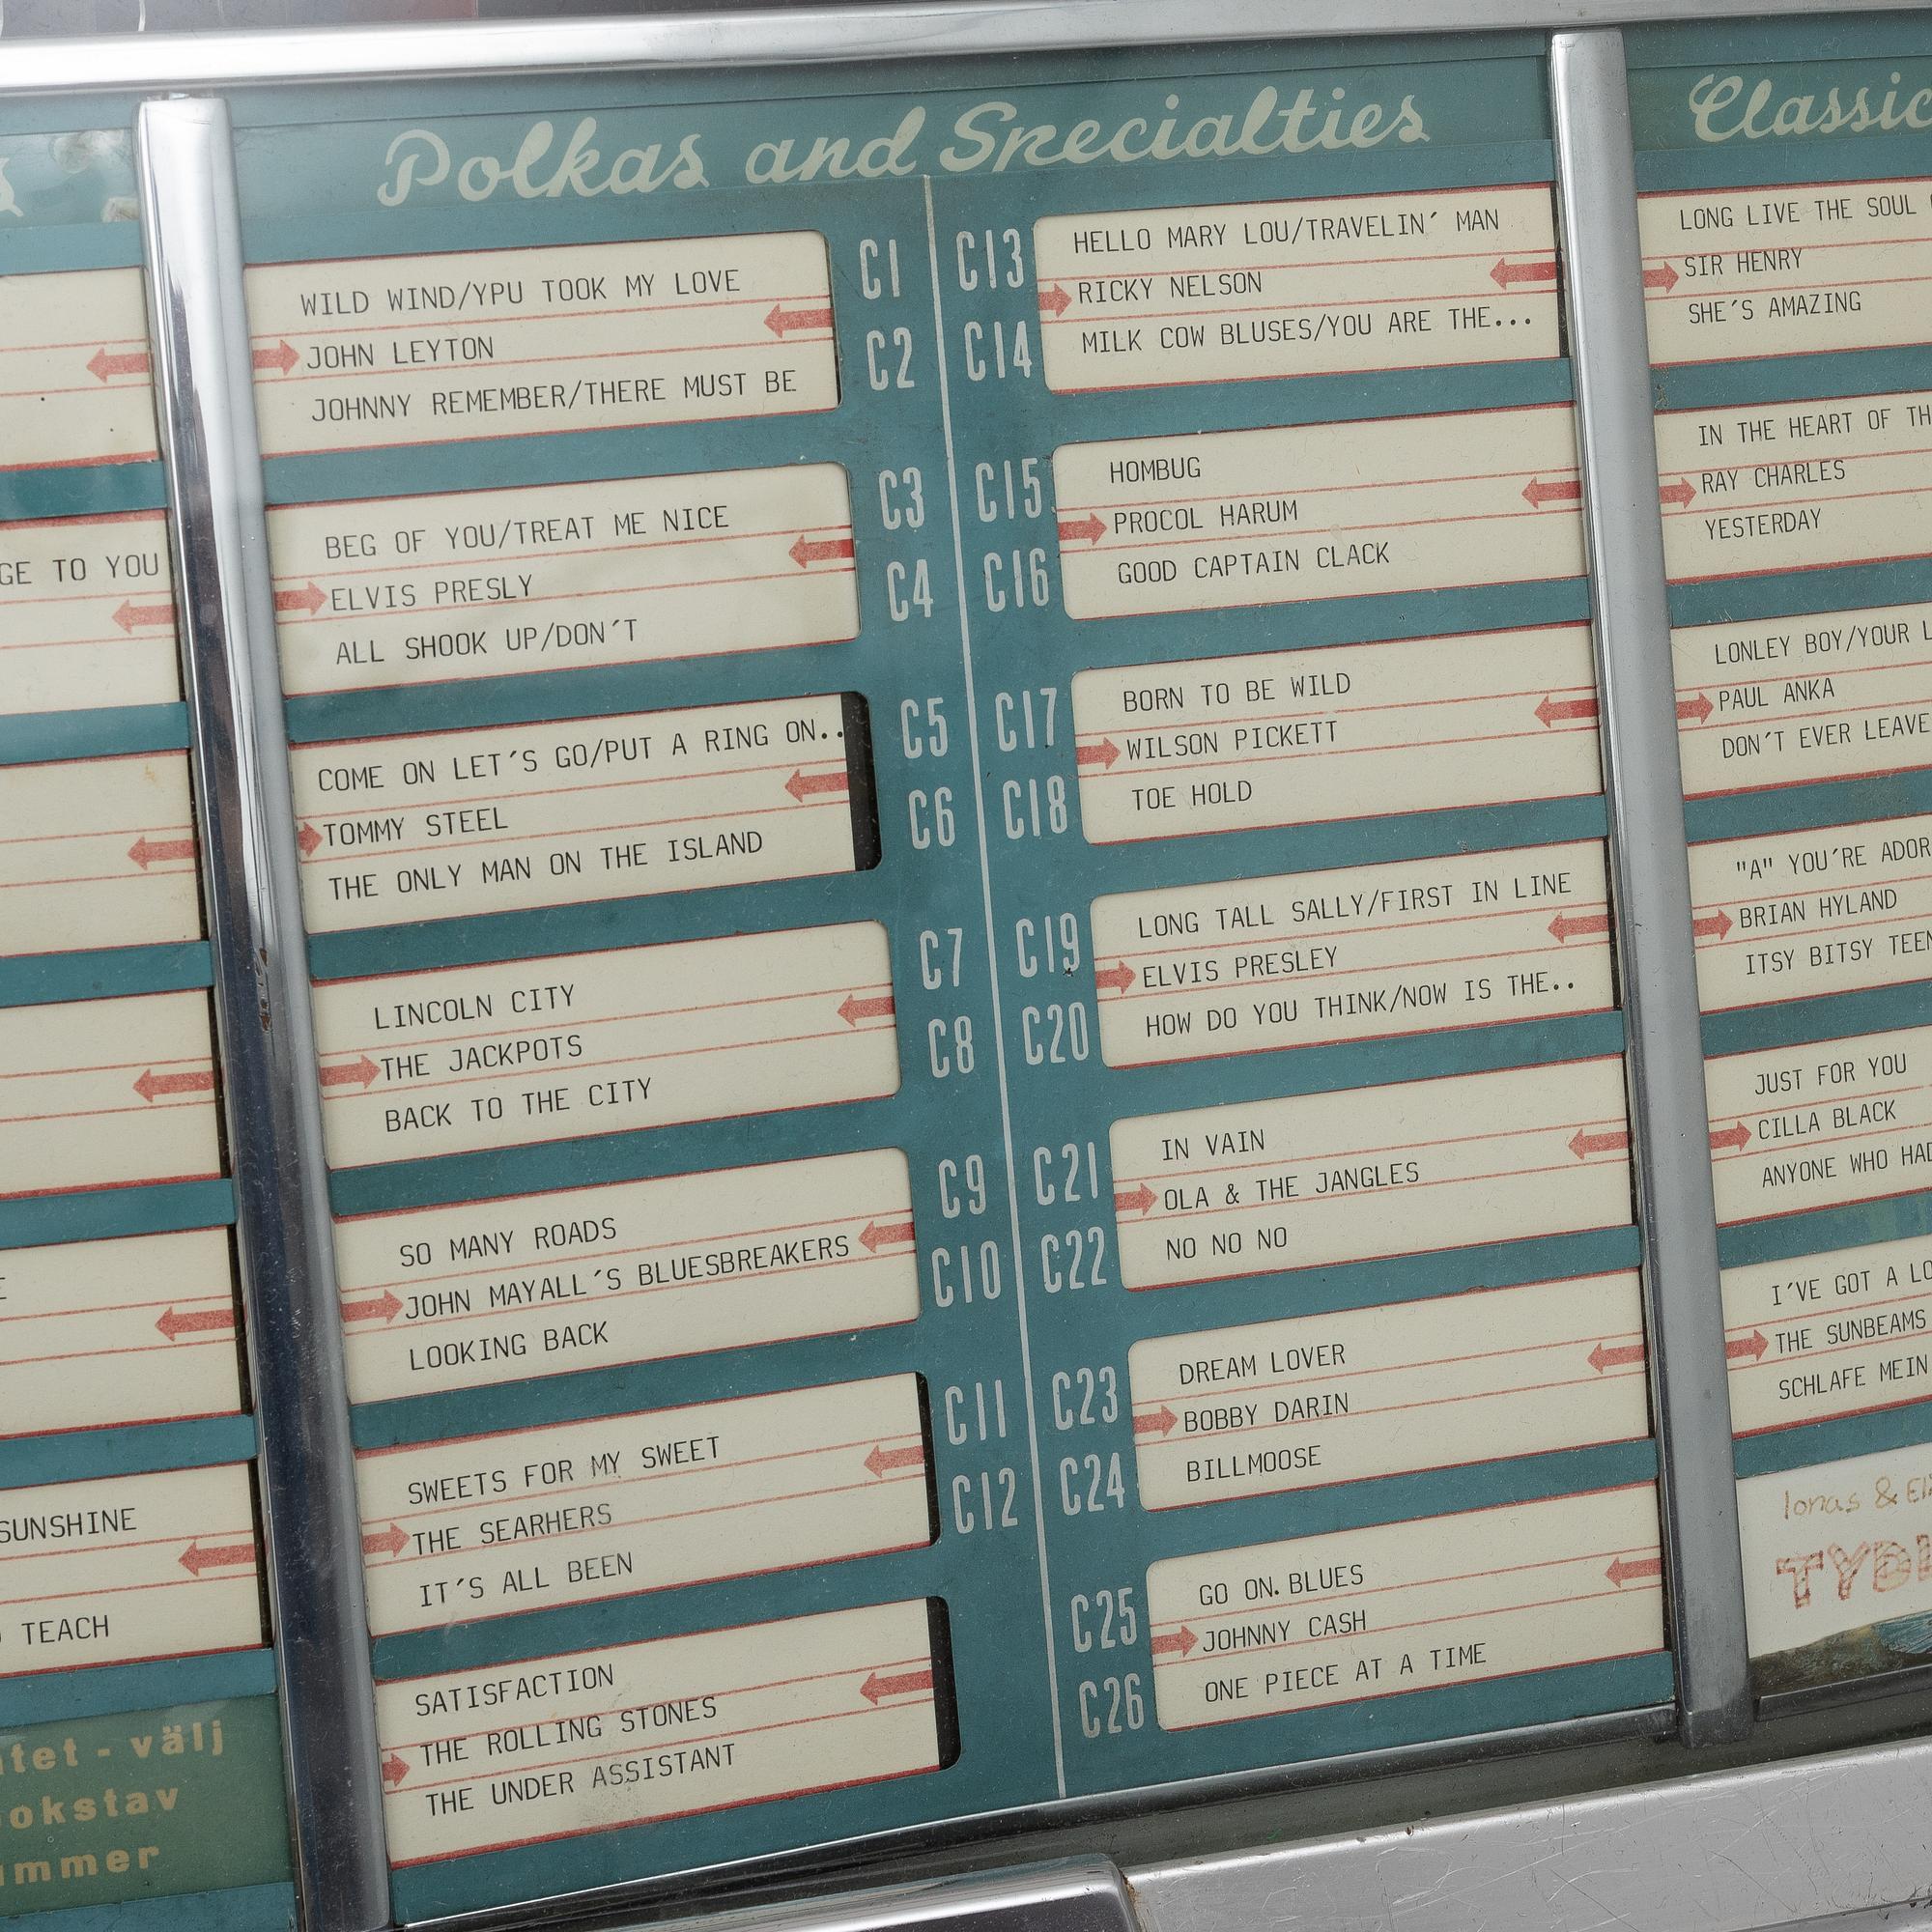 Polkas and Specialties
WILD WIND/YPU TOOK MY LOVE
JOHN LEYTON
JOHNNY REMEMBER/THERE MUST BE
C1
C2
BEG OF YOU/TREAT ME NICE
ELVIS PRESLY
ALL SHOOK UP/DON'T
C3
C4
COME ON LET'S GO/PUT A RING ON..
TOMMY STEEL
THE ONLY MAN ON THE ISLAND
C5
C6
LINCOLN CITY
THE JACKPOTS
BACK TO THE CITY
C7
C8
SO MANY ROADS
JOHN MAYALL'S BLUESBREAKERS
LOOKING BACK
C9
C10
SWEETS FOR MY SWEET
THE SEARHERS
IT'S ALL BEEN
C11
C12
SATISFACTION
THE ROLLING STONES
THE UNDER ASSISTANT
C13
C14
HELLO MARY LOU/TRAVELIN' MAN
RICKY NELSON
MILK COW BLUSES/YOU ARE THE...
C15
C16
HOMBUG
PROCOL HARUM
GOOD CAPTAIN CLACK
C17
C18
BORN TO BE WILD
WILSON PICKETT
TOE HOLD
C19
C20
LONG TALL SALLY/FIRST IN LINE
ELVIS PRESLEY
HOW DO YOU THINK/NOW IS THE..
C21
C22
IN VAIN
OLA & THE JANGLES
NO NO NO
C23
C24
DREAM LOVER
BOBBY DARIN
BILLMOOSE
C25
C26
GO ON. BLUES
JOHNNY CASH
ONE PIECE AT A TIME
Classic
LONG LIVE THE SOUL
SIR HENRY
SHE'S AMAZING
IN THE HEART OF TH
RAY CHARLES
YESTERDAY
LONLEY BOY/YOUR L
PAUL ANKA
DON'T EVER LEAVE
"A" YOU'RE ADOR
BRIAN HYLAND
ITSY BITSY TEEN
JUST FOR YOU
CILLA BLACK
ANYONE WHO HAD
I'VE GOT A LO
THE SUNBEAMS
SCHLAFE MEIN
GE TO YOU
SUNSHINE
TEACH
tet - välj
okstav
mmer